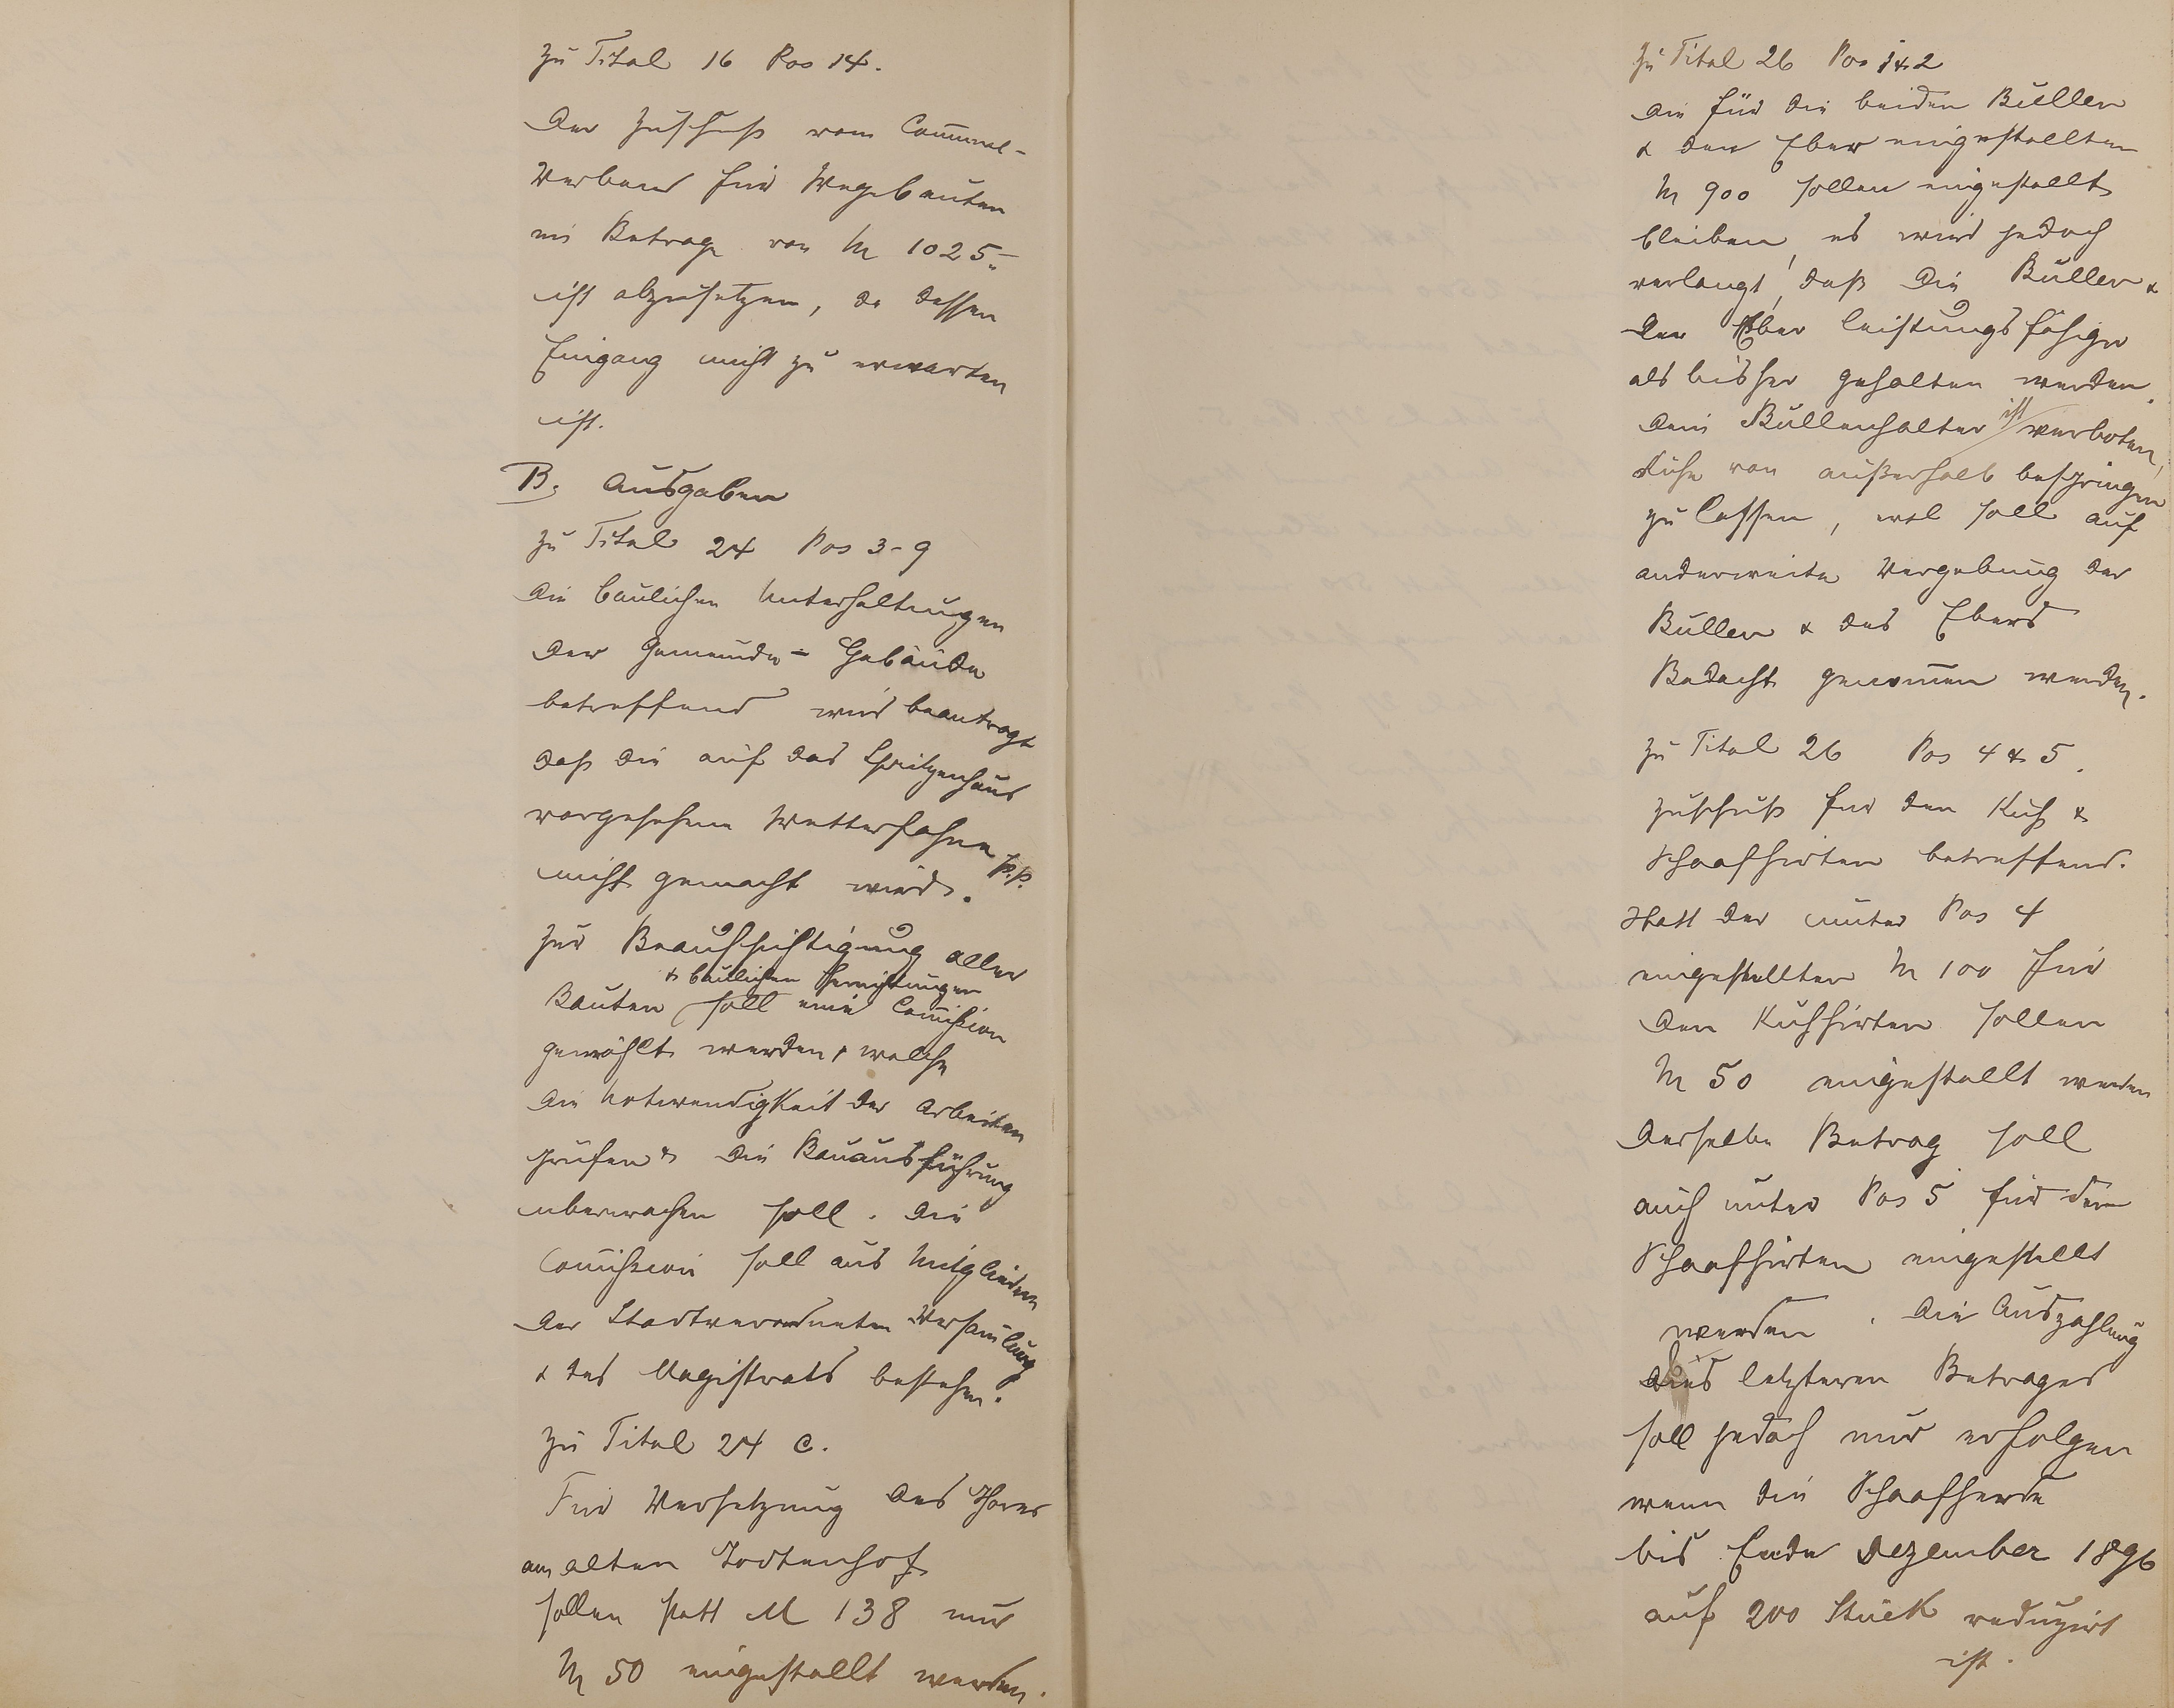 zu Titel 16 Pos 14.
Der Zuschuß vom Com̄unal-
Verband für Wegebauten
im Betrage von M 1025.-
ist abzusetzen, da dessen
Eingang nicht zu erwarten
ist.
B. Ausgaben
zu Titel 24 Pos 3-9
die baulichen Unterhaltungen
der Gemeinde-Gebäude
betreffend wird beantragt
daß die auf das Spritzenhaus
vorgesehene Wetterfahne p.p.
nicht gemacht wird.
Zur Beaufsichtigung aller
& baulichen Herrichtungen
Bauten soll eine Com̄ission
gewählt werden, welche
die Notwendigkeit der Arbeiten
prüfen & die Bauausführung
überwachen soll. Die
Com̄ission soll aus Mitgliedern
der Stadtverordneten Versam̄lung
& des Magistrats bestehen.
zu Titel 24 c.
Für Versetzung des Thores
am alten Todtenhof
sollen statt M 138 nur
M 50 eingestellt werden.
zu Titel 26 Pos 1 & 2
die für die beiden Bullen
& den Eber eingestellten
M 900 sollen eingestellt
bleiben, es wird jedoch
verlangt, daß die Bullen &
der Eber leistungsfähiger
als bisher gehalten werden.
Dem Bullenhalter ist verboten,
Kühe von außerhalb bespringen
zu lassen, evtl soll auf
anderweite Vergebung der
Bullen & des Ebers
Bedacht genom̄en werden.
zu Titel 26 Pos 4 & 5.
Zuschuß für den Kuh &
Schaafhirten betreffend.
Statt der unter Pos 4
eingestellten M 100 für
den Kuhhirten sollen
M 50 eingestellt werden
Derselbe Betrag soll
auch unter Pos 5 für den
Schaafhirten eingestellt
werden. Die Auszahlung
des letzteren Betrages
soll jedoch nur erfolgen
wenn die Schaafherde
bis Ende Dezember 1896
auf 200 Stück reduzirt
ist.